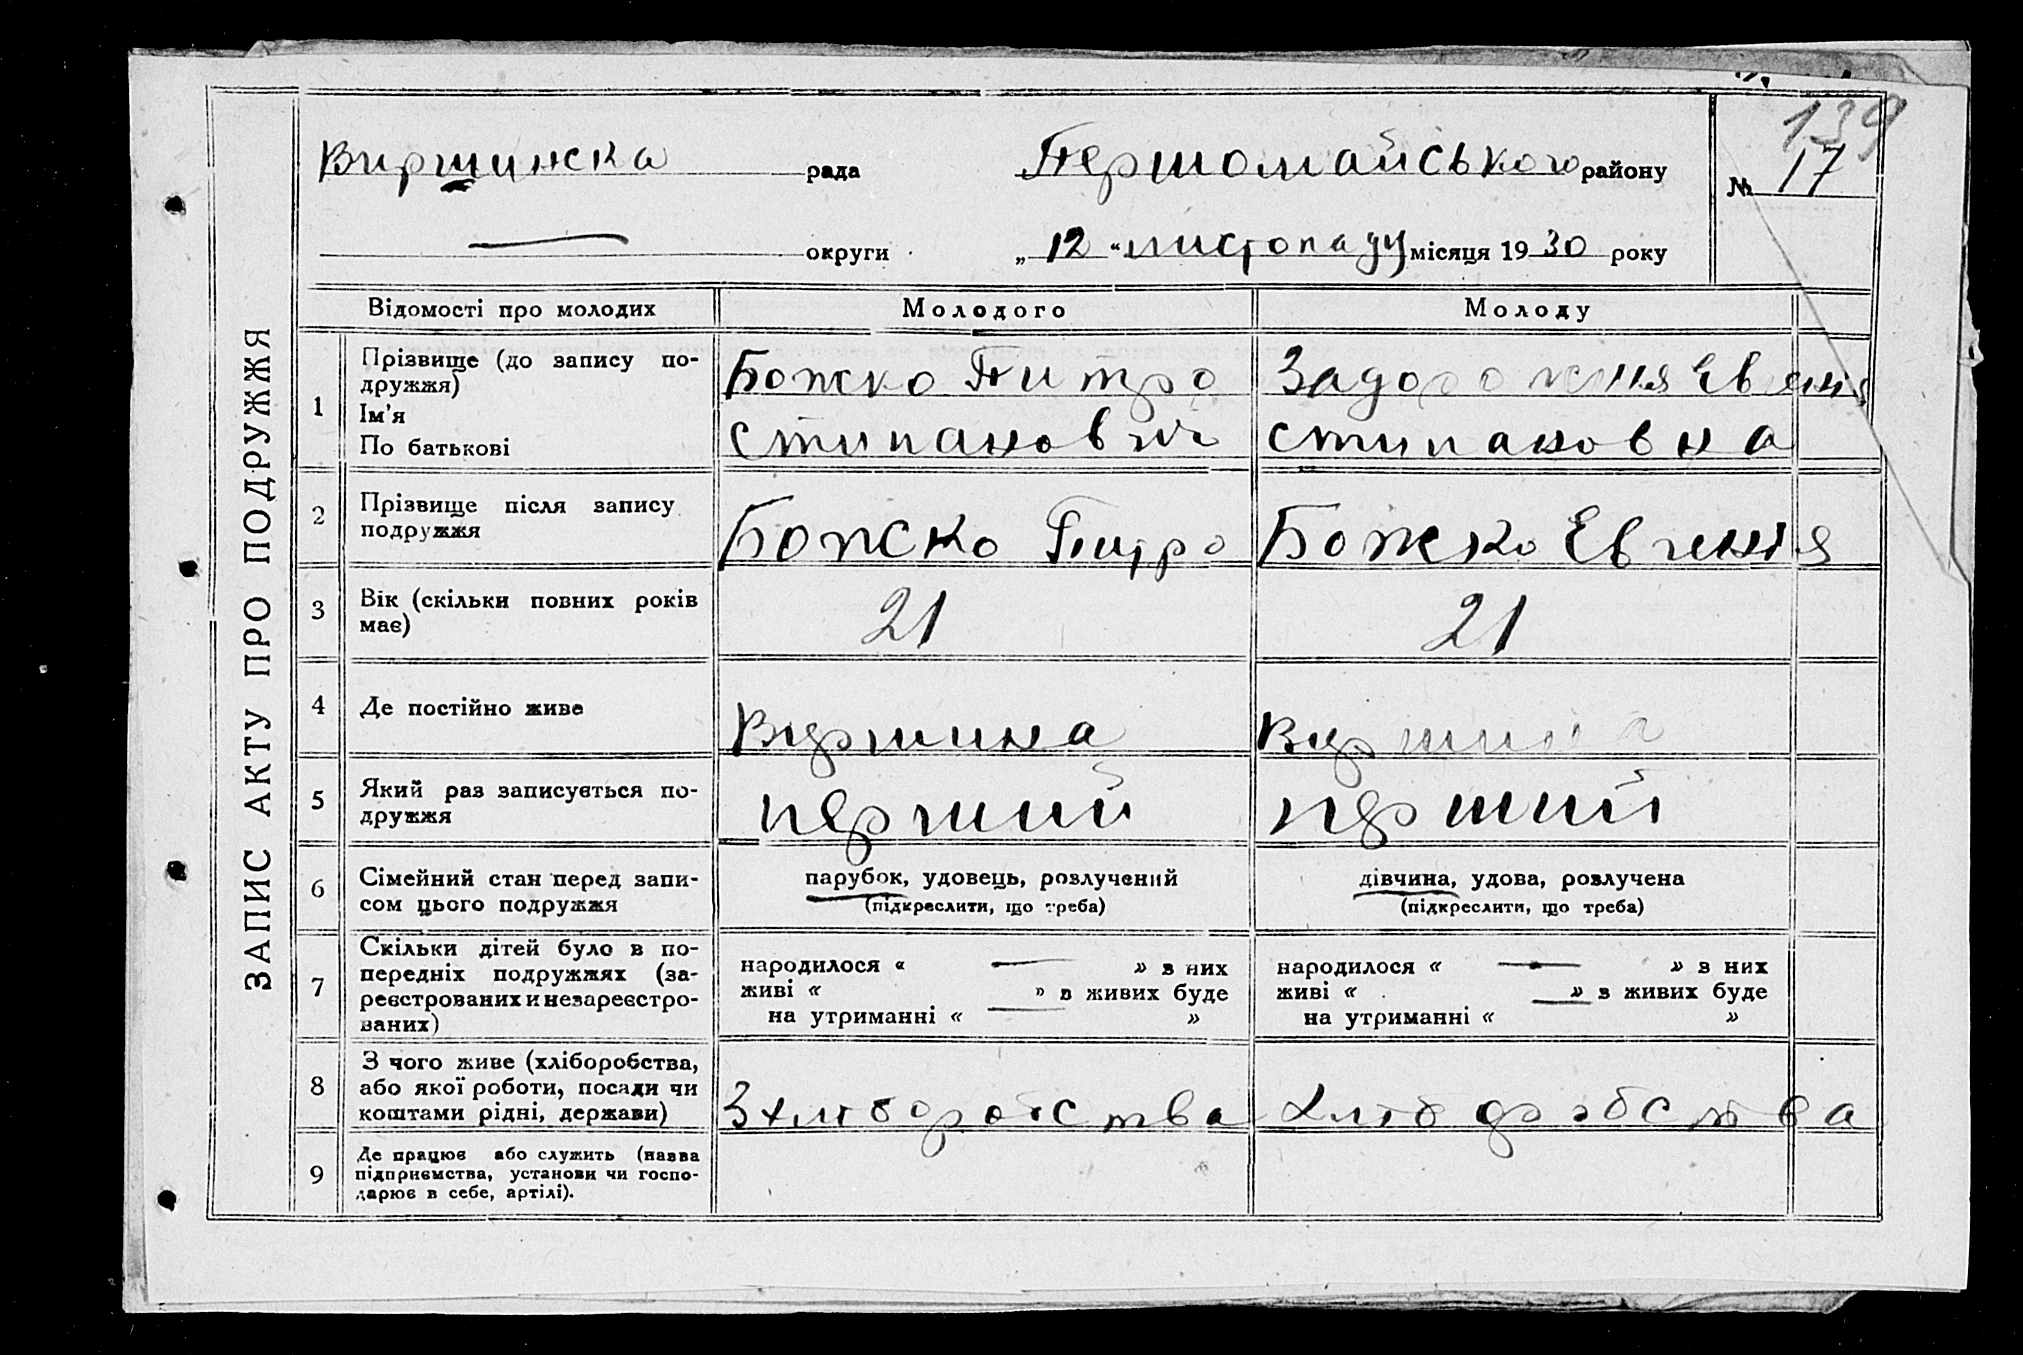 139
Виршинска рада Першомайського району № 17
округи „ 12 “ листопаду місяця 19 30 року
ЗАПИС АКТУ ПРО ПОДРУЖЖЯ
Відомості про молодих Молодого Молоду
1 Прізвище (до запису по-
дружжя)
Ім'я
По батькові
Божко Питро
Стипанович
Задорожня Евгения
Стипановна
2 Прізвище після запису
подружжя
Божско Питро
Божско Евгенія
3 Вік (скільки повних років
має)
21
21
4 Де постійно живе
Виршина
Виршина
5 Який раз записується по-
дружжя
перший
перший
6 Сімейний стан перед запи-
сом цього подружжя
парубок, удовець, розлучений
(підкреслити, що треба)
дівчина, удова, розлучена
(підкреслити, що треба)
7 Скільки дітей було в по-
передніх подружжях (за-
реєстрованих и незареєстро-
ваних)
народилося « — » з них
живі « » в живих буде
на утриманні « — »
народилося « — » з них
живі « — » з живих буде
на утриманні « »
8 З чого живе (хліборобства,
або якої роботи, посади чи
коштами рідні, держави)
З хліборобства
Хліборобства
9 Де працює або служить (назва
підприємства, установи чи госпо-
дарює в себе, артілі).